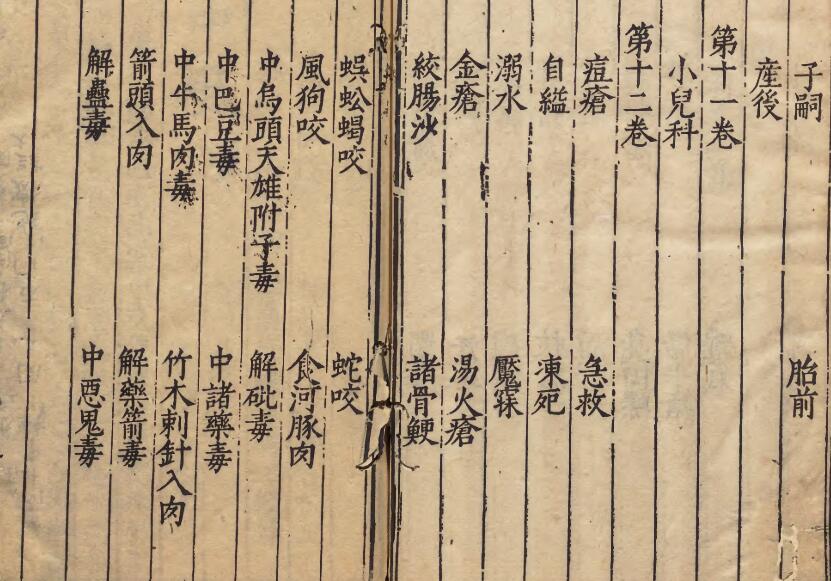 子嗣 胎前
産後
第十一卷
小兒科
第十二卷
痘瘡 急救
自縊 凍死
溺水 魘寐
金瘡 湯火瘡
絞腸沙 諸骨鯁
蜈蚣蝎咬 蛇咬
風狗咬 食河豚肉
中烏頭天雄附子毒 解砒毒
中巴豆毒 中諸藥毒
中牛馬肉毒 竹木刺針入肉
箭頭入肉 解藥箭毒
解蠱毒 中惡鬼毒